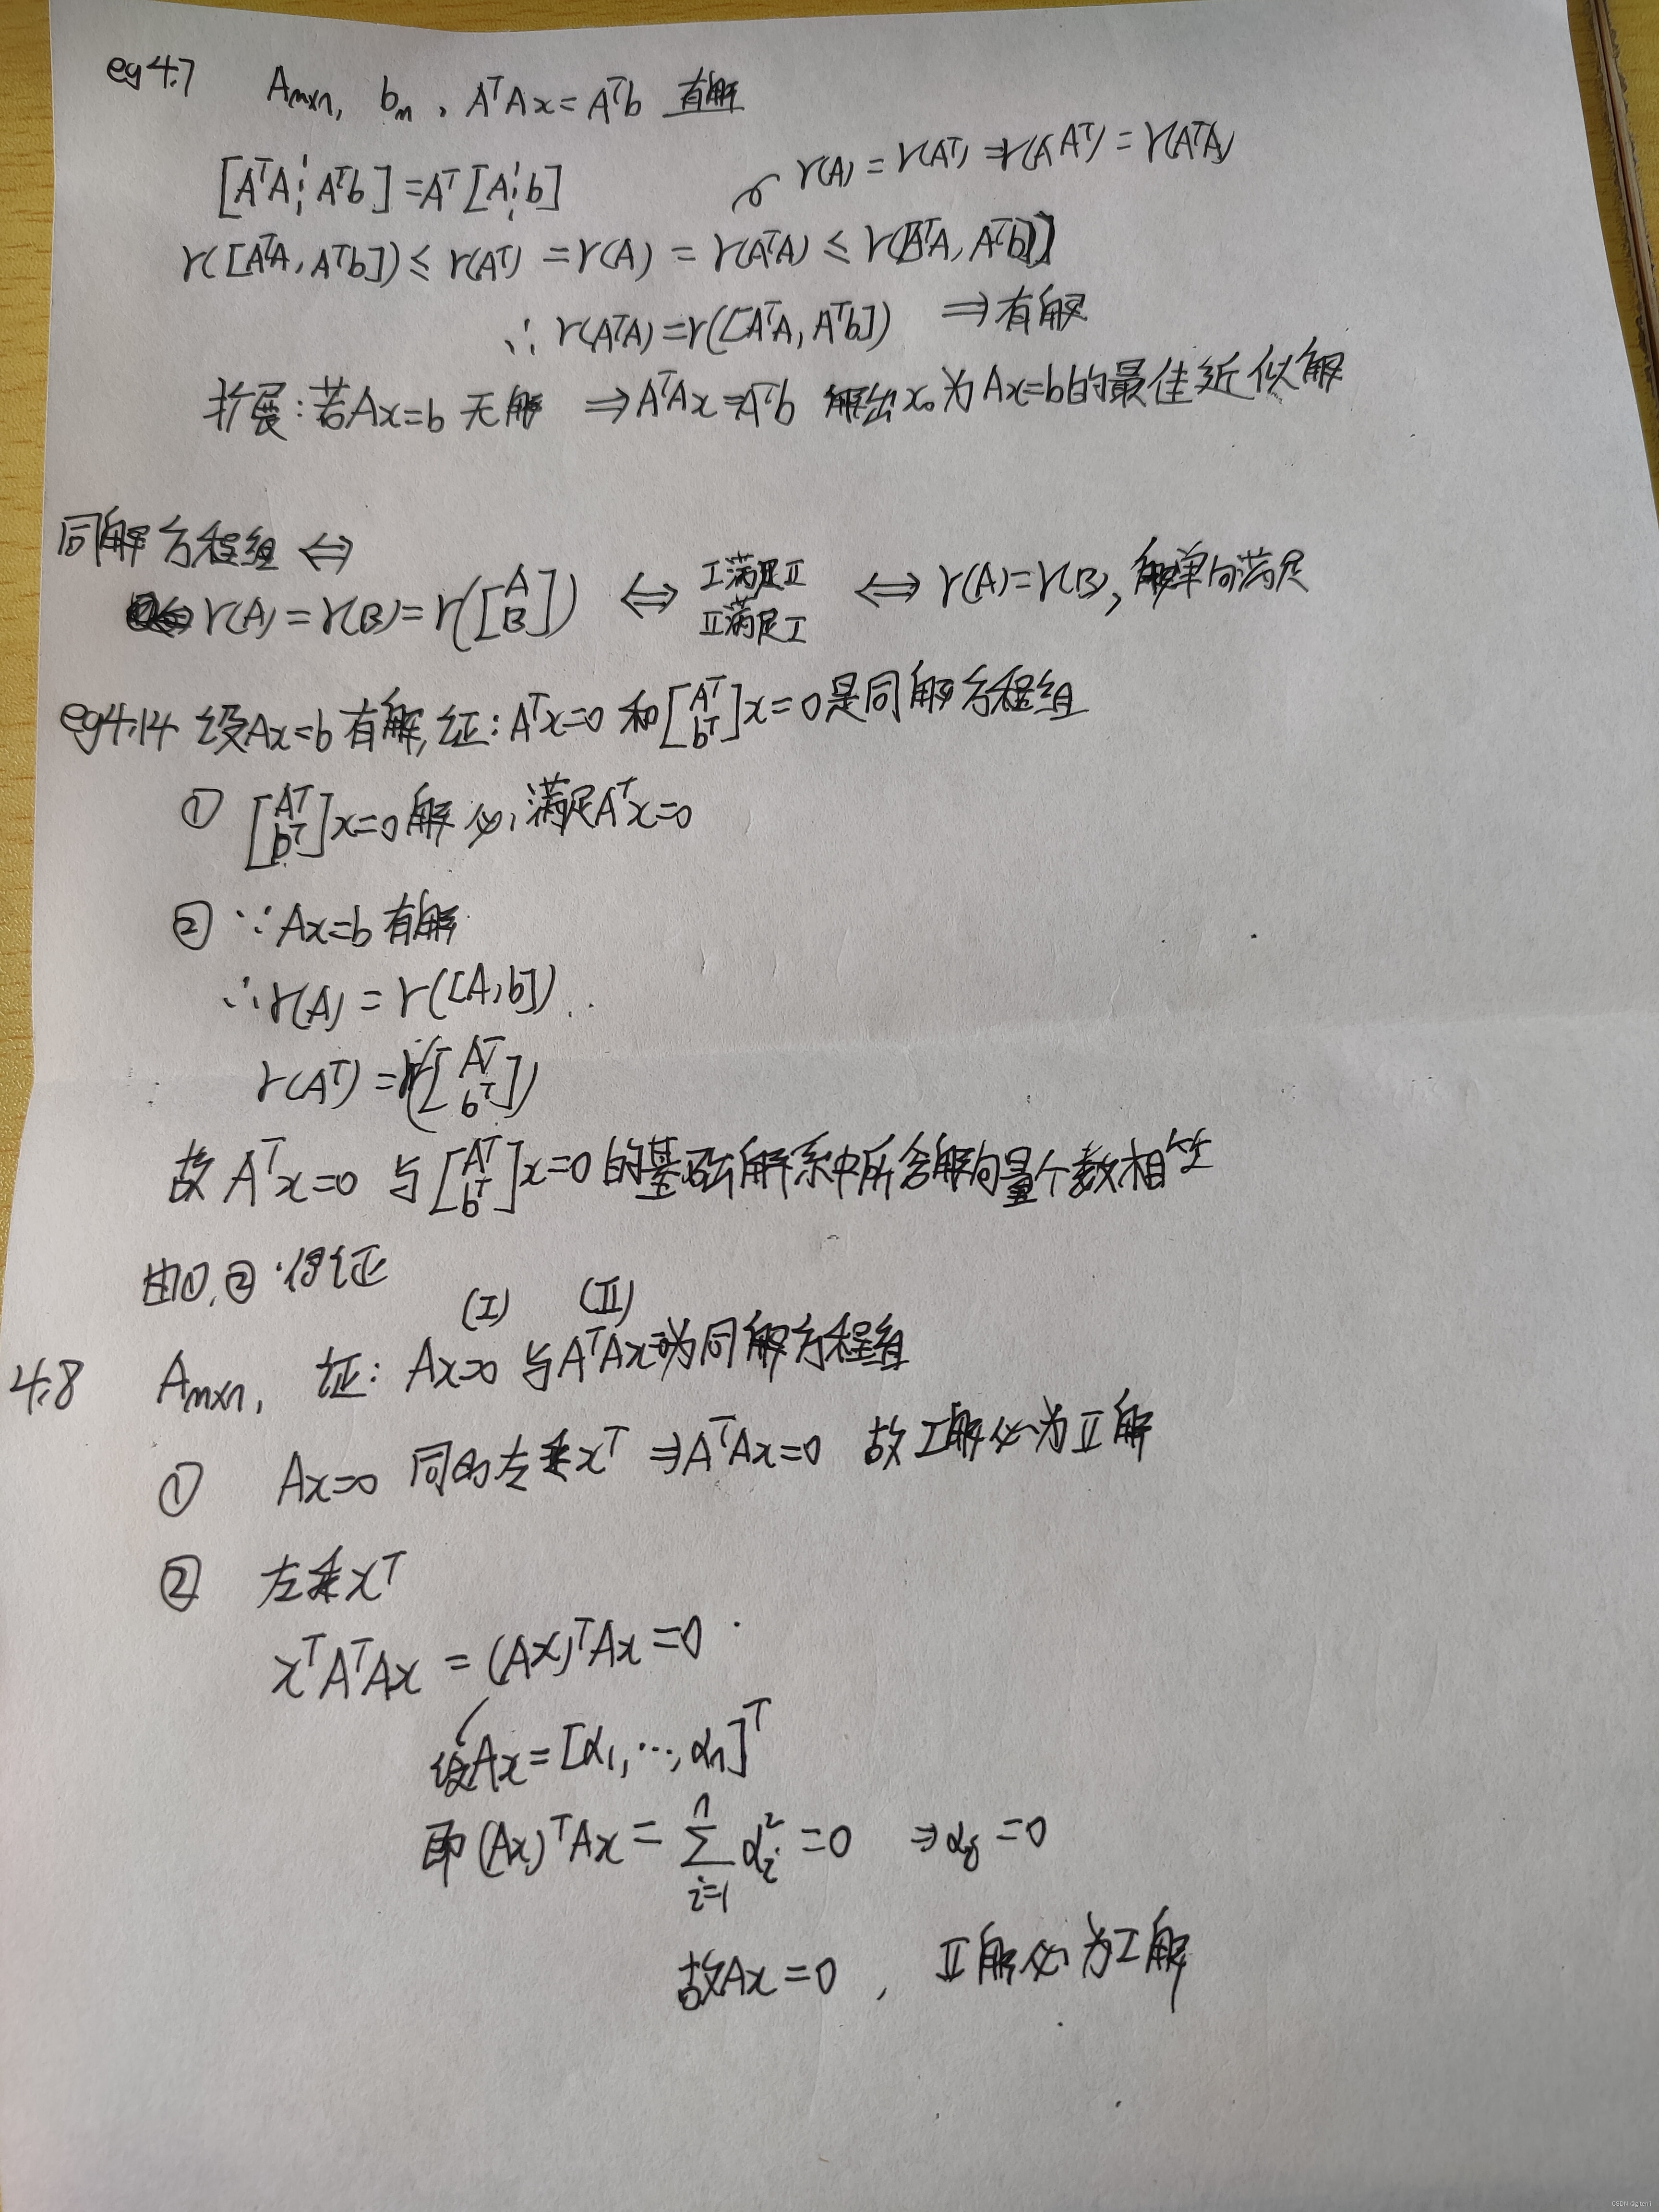 eg4.7 A_{m×n}, b_m, AᵀAx=Aᵀb 有解
[AᵀA ¦ Aᵀb]=Aᵀ[A ¦ b]
r(A)=r(Aᵀ)=r(AAᵀ)=r(AᵀA)
r([AᵀA, Aᵀb])≤r(Aᵀ)=r(A)=r(AᵀA)≤r([AᵀA, Aᵀb])
∴r(AᵀA)=r([AᵀA, Aᵀb]) ⇒有解
扩展:若Ax=b无解 ⇒AᵀAx=Aᵀb 解出x₀为Ax=b的最佳近似解
同解方程组⇔
r(A)=r(B)=r([A B]) ⇔ Ⅰ满足Ⅱ Ⅱ满足Ⅰ ⇔ r(A)=r(B), 解单向满足
eg4.14 设Ax=b有解,证:Aᵀx=0和[Aᵀ bᵀ]x=0是同解方程组
① [Aᵀ bᵀ]x=0解必满足Aᵀx=0
② ∵Ax=b有解
∴r(A)=r([A,b])
r(Aᵀ)=r([Aᵀ bᵀ])
故Aᵀx=0与[Aᵀ bᵀ]x=0的基础解系中所含解向量个数相等
由①,②得证
(Ⅰ) (Ⅱ)
4.8 A_{m×n}, 证: Ax=0与AᵀAx=0为同解方程组
① Ax=0 同时左乘xᵀ ⇒AᵀAx=0 故Ⅰ解必为Ⅱ解
② 左乘xᵀ
xᵀAᵀAx=(Ax)ᵀAx=0
设Ax=[α₁,…,αₙ]ᵀ
即(Ax)ᵀAx=∑_{i=1}^{n} αᵢ²=0 ⇒αᵢ=0
故Ax=0, Ⅱ解必为Ⅰ解